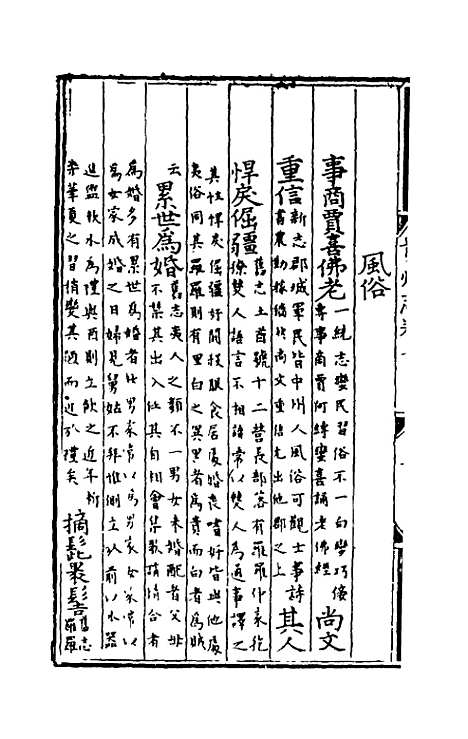 風俗
事商賈喜佛老 一統志爨民習俗不一白
專事商賈阿 爨喜誦老佛經 尚文
重信 新志郡城軍民皆中州人風俗可觀士事詩
書農勤稼穡 尚文重信尤出他郡之上 其人
悍戾倔彊 舊志土酋號十二營長部落有羅羅仲家犵
獠僰人語言不相諳常以僰人爲通事譯之
其性悍戾倔彊好鬪 食居處婚喪嗜好皆與他處
夷俗同其羅羅則有黑白之異黑者爲貴而白者爲賤
云 累世爲婚 舊志夷人之類不一男女未婚配者父母
不禁其出入任其自相會集歌 情合者
爲婚多有累世爲婚者 男家常以爲男家女家常以
爲女家成婚之日婦見舅姑不拜惟側立以前以水器
進盥飲水爲 則立飲之近年漸
染華夏之習稍變其陋而近於 矣 摘髭裹髻 舊志
羅羅